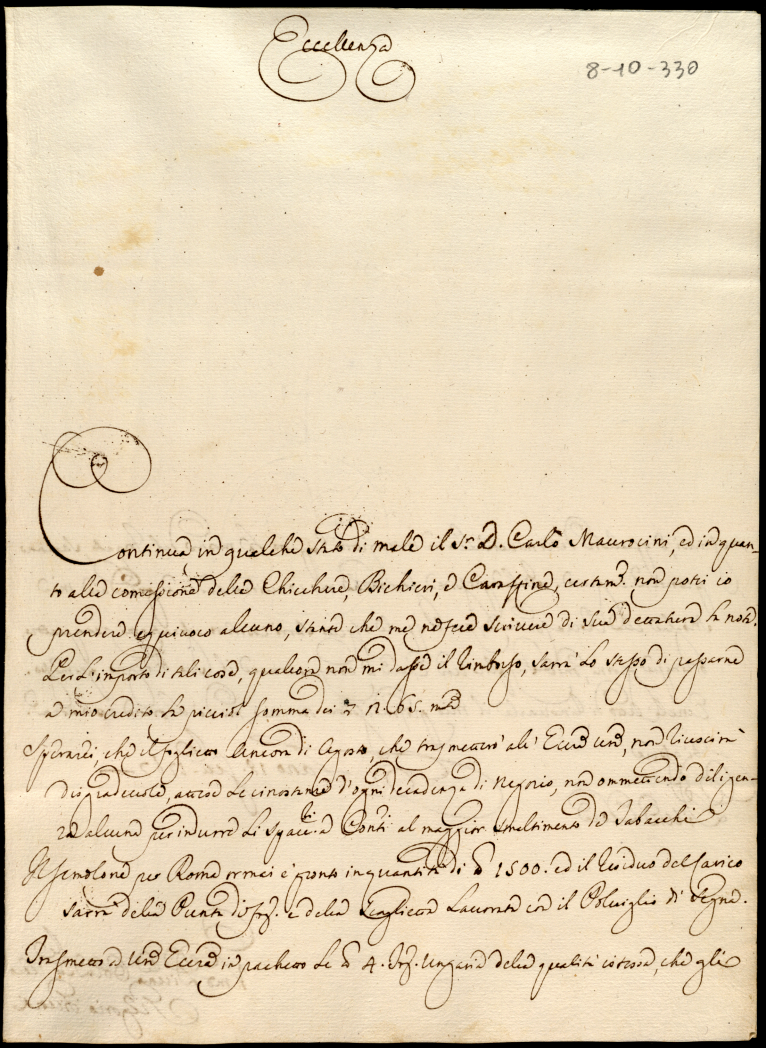 Eccellenza
8-10-330
Continua in qualche stato di male il Sr. D. Carlo Maurocini, ed in quan-
to alla comissione delle Chicchere, Bichieri, e Caraffine, certam. non potei io
prendere equivoco alcuno, stante che me ne fece scrivere di sua dettatura la nota.
Per l'importo di tali cose, qualora non mi dasse il rimborso, sarrà lo stesso di passarne
a mio credito la picciol somma dei
Sperarei, che il foglietto ancora di Agosto, che trasmetterò all' Ecc.a Vra, non riuscirà
disgradevole, attese le circostanze d'ogni decadenza di Negozio, non ommettendo diligen-
za alcuna per indurre li Spacc.ri e Conti al maggior smaltimento de Tabacchi
Il Semolone per Roma ormai è pronto in quantità di 1500. ed il residuo del Carico
sarrà della Punta e della Scaglietta Lavorata con il Polviglio di
Trasmetto a Vra Ecc.a in pachetto le 4. Ungaria della qualità istessa, che gli